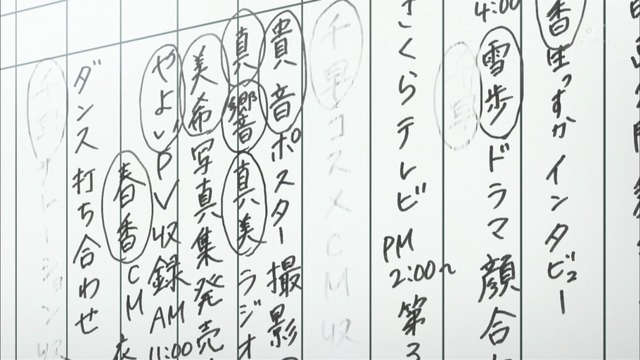 香 生っすか インタビュー
4:00
雪歩 ドラマ 顔合
さくらテレビ PM 2:00〜 第3
千早 コスメCM収
貴音 ポスター撮影
真 響 真美 ラジオ
美希 写真集発売
やよい PV収録 AM 11:00
春香 CM 衣
ダンス 打ち合わせ
千早